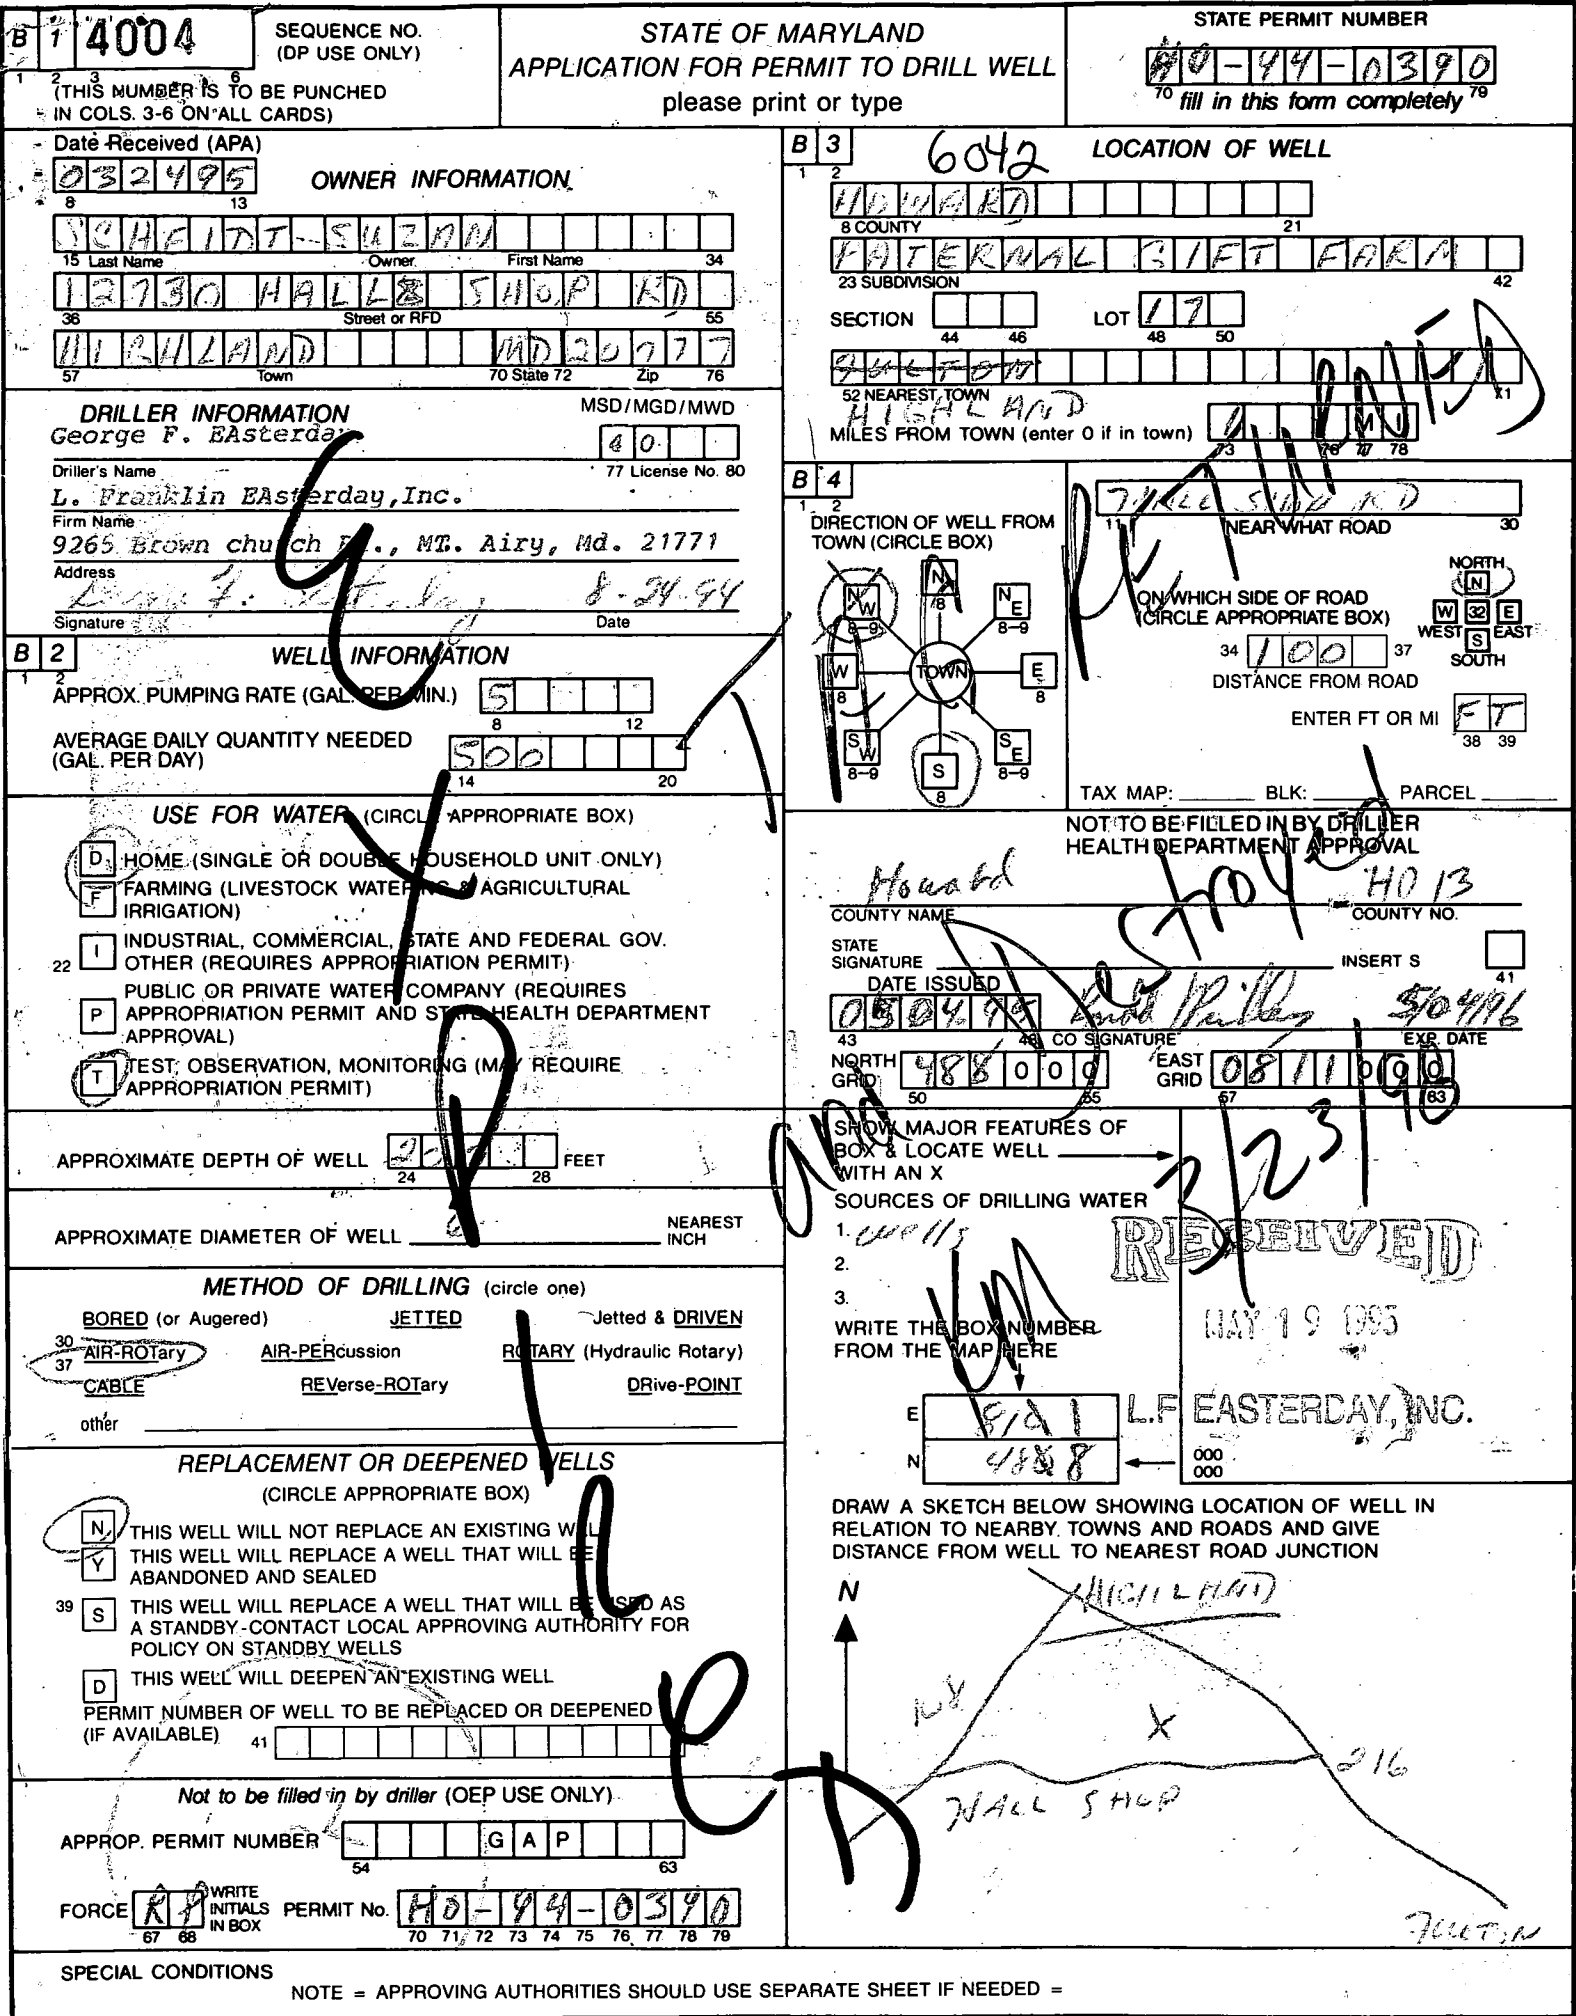 B 1 4004
SEQUENCE NO.
(DP USE ONLY)
1 2 3 6
(THIS NUMBER IS TO BE PUNCHED
IN COLS. 3-6 ON ALL CARDS)
STATE OF MARYLAND
APPLICATION FOR PERMIT TO DRILL WELL
please print or type
STATE PERMIT NUMBER
HO-94-0390
70 fill in this form completely 79
Date Received (APA)
032495
8 13
OWNER INFORMATION
SCHFIDT SUZAN
15 Last Name Owner First Name 34
12730 HALL SHOP RD
36 Street or RFD 55
HIGHLAND MD 20777
57 Town 70 State 72 Zip 76
DRILLER INFORMATION
MSD/MGD/MWD
George F. EAsterday
40
Driller's Name
77 License No. 80
L. Franklin EAsterday,Inc.
Firm Name
9265 Brown church Rd., MT. Airy, Md. 21771
Address
8-24-94
Signature Date
B 2
1 2
WELL INFORMATION
APPROX. PUMPING RATE (GAL. PER MIN.) 5
8 12
AVERAGE DAILY QUANTITY NEEDED
(GAL. PER DAY) 500
14 20
USE FOR WATER (CIRCLE APPROPRIATE BOX)
D HOME (SINGLE OR DOUBLE HOUSEHOLD UNIT ONLY)
F FARMING (LIVESTOCK WATERING & AGRICULTURAL
IRRIGATION)
22 I INDUSTRIAL, COMMERCIAL, STATE AND FEDERAL GOV.
OTHER (REQUIRES APPROPRIATION PERMIT)
P PUBLIC OR PRIVATE WATER COMPANY (REQUIRES
APPROPRIATION PERMIT AND STATE HEALTH DEPARTMENT
APPROVAL)
T TEST, OBSERVATION, MONITORING (MAY REQUIRE
APPROPRIATION PERMIT)
APPROXIMATE DEPTH OF WELL FEET
24 28
APPROXIMATE DIAMETER OF WELL NEAREST
INCH
METHOD OF DRILLING (circle one)
BORED (or Augered) JETTED Jetted & DRIVEN
30 AIR-ROTary AIR-PERcussion ROTARY (Hydraulic Rotary)
37
CABLE REVerse-ROTary DRive-POINT
other
REPLACEMENT OR DEEPENED WELLS
(CIRCLE APPROPRIATE BOX)
N THIS WELL WILL NOT REPLACE AN EXISTING WELL
Y THIS WELL WILL REPLACE A WELL THAT WILL BE
ABANDONED AND SEALED
39 S THIS WELL WILL REPLACE A WELL THAT WILL BE USED AS
A STANDBY-CONTACT LOCAL APPROVING AUTHORITY FOR
POLICY ON STANDBY WELLS
D THIS WELL WILL DEEPEN AN EXISTING WELL
PERMIT NUMBER OF WELL TO BE REPLACED OR DEEPENED
(IF AVAILABLE) 41
Not to be filled in by driller (OEP USE ONLY)
APPROP. PERMIT NUMBER GAP
54 63
FORCE WRITE
INITIALS
IN BOX
67 68
PERMIT No. HO-94-0390
70 71 72 73 74 75 76 77 78 79
B 3
1 2
6042
LOCATION OF WELL
HOWARD
8 COUNTY 21
FATERNAL GIFT FARM
23 SUBDIVISION 42
SECTION LOT 17
44 46 48 50
FULTON
52 NEAREST TOWN 71
HIGHLAND
MILES FROM TOWN (enter 0 if in town) 1 MI
73 76 77 78
RETURNED
B 4
1 2
DIRECTION OF WELL FROM
TOWN (CIRCLE BOX)
NW N NE
8-9 8 8-9
W TOWN E
8 8
SW S SE
8-9 8 8-9
HALL SHOP RD
11 NEAR WHAT ROAD 30
ON WHICH SIDE OF ROAD
(CIRCLE APPROPRIATE BOX)
NORTH
N
W 32 E
WEST S EAST
SOUTH
34 100 37
DISTANCE FROM ROAD
ENTER FT OR MI FT
38 39
TAX MAP: BLK: PARCEL
NOT TO BE FILLED IN BY DRILLER
HEALTH DEPARTMENT APPROVAL
Howard HO 13
COUNTY NAME COUNTY NO.
STATE
SIGNATURE INSERT S
41
DATE ISSUED
050495 5/04/96
43 48 CO SIGNATURE EXP. DATE
NORTH
GRID 488000
50 55
EAST
GRID 0811000
57 63
and Destroyed
3/23/96
SHOW MAJOR FEATURES OF
BOX & LOCATE WELL
WITH AN X
SOURCES OF DRILLING WATER
1. wells
2.
3.
WRITE THE BOX NUMBER
FROM THE MAP HERE
E
N
RECEIVED
MAY 19 1995
L.F. EASTERDAY, INC.
000
000
DRAW A SKETCH BELOW SHOWING LOCATION OF WELL IN
RELATION TO NEARBY TOWNS AND ROADS AND GIVE
DISTANCE FROM WELL TO NEAREST ROAD JUNCTION
N
HIGHLAND
X
216
HALL SHOP
FULTON
SPECIAL CONDITIONS
NOTE = APPROVING AUTHORITIES SHOULD USE SEPARATE SHEET IF NEEDED =